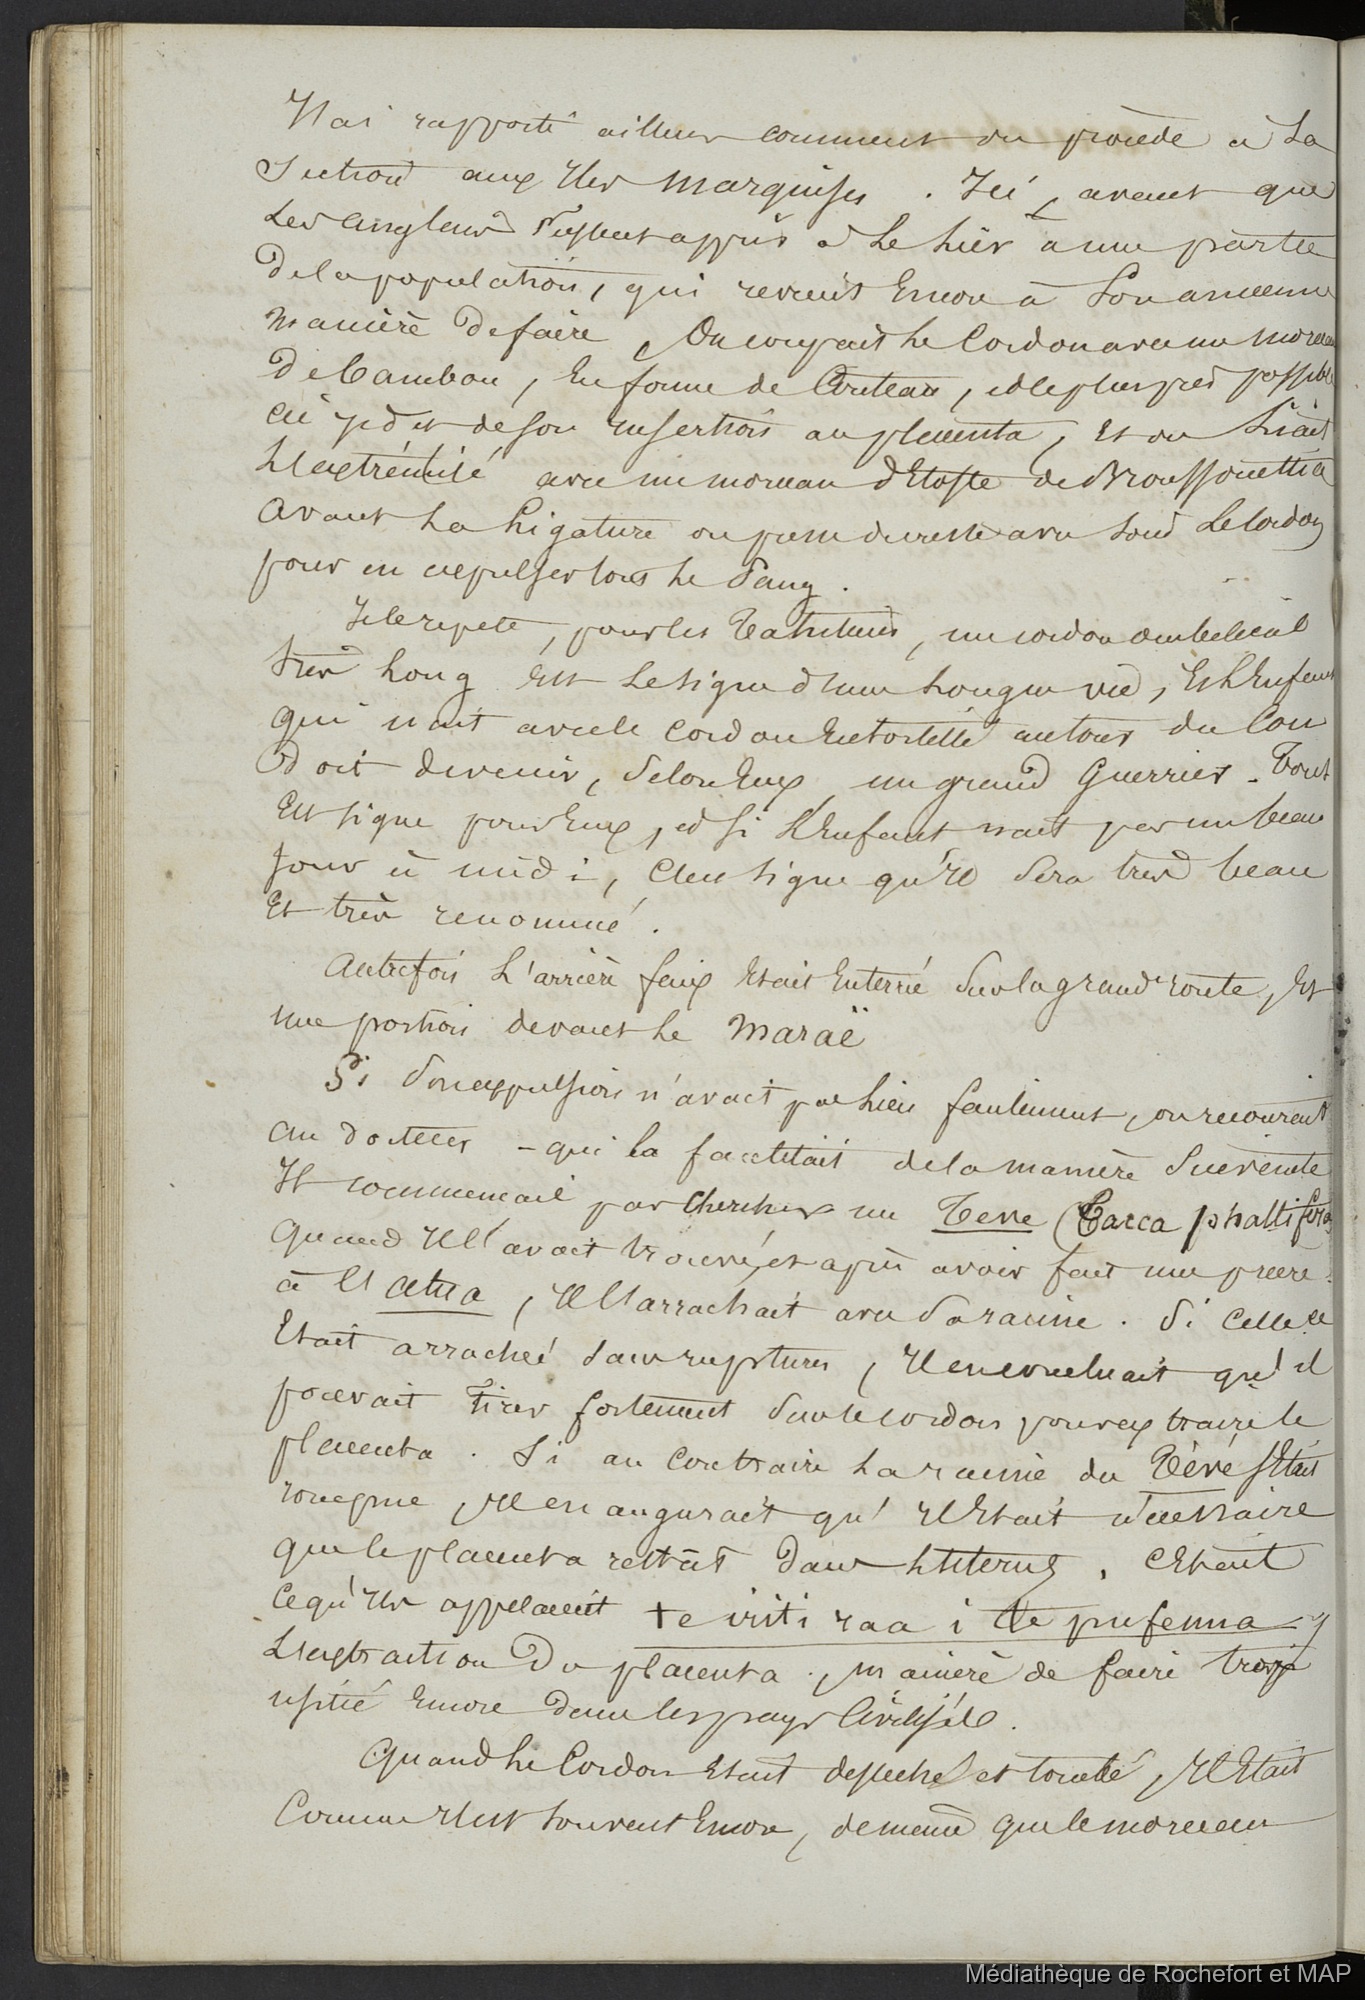 J'ai rapporté ailleurs comment on procède à la
Section aux Iles Marquises. Ici, avant que
les anglais eussent appris à le lier à une partie
de la population, qui revient Encore à son ancienne
manière de faire, On coupait le Cordon avec un morceau
de bambou, En forme de Couteau, et le plus près possible
de son insertion au placenta, et on liait
l'extrémité avec un morceau d'Etoffe de Broussonettia
avant la ligature on pressurait avec soin le cordon
pour en expulser tout le sang.
Je le repete, pour les Tahitiens, un cordon ombelical
très long Est le signe d'une longue vie, Et l'Enfant
qui nait avec le cordon Entortillé autour du Cou
doit devenir, selon Eux, un grand Guerrier - Tout
Est signe pour Eux, et si l'Enfant nait par un beau
jour à midi, c'est signe qu'Il sera très beau
Et très renommé.
Autrefois l'arrière faix Etait Enterré sur la grand'route, Et
une portion devant le Maraë
Si son expulsion n'avait pas lieu facilement, on recourait
au docteur - qui la facilitait de la manière suivante
Il commencait par chercher un Teve (Tacca phallifera
Quand Il l'avait trouvé, et après avoir fait une prière
à l'atua, Il l'arrachait avec sa racine. Si celle ci
Etait arrachée sans ruptures, Il en concluait qu'il
pouvait tirer fortement sur le cordon pour extraire le
placenta. Si au Contraire la racine du Tévé s'Etait
rompue, Il en augurait qu'Il Etait nécessaire
que le placenta restât dans l'Uterus. C'Etait
ce qu'Ils appelaient te iriti raa i te pufenua
L'extraction du placenta, manière de faire trop
usitée Encore dans les pays Civilisés.
Quand le Cordon Etait desséché et tombé, Il Etait
Comme Il est souvent Encore, de même que le morceau
Médiathèque de Rochefort et MAP